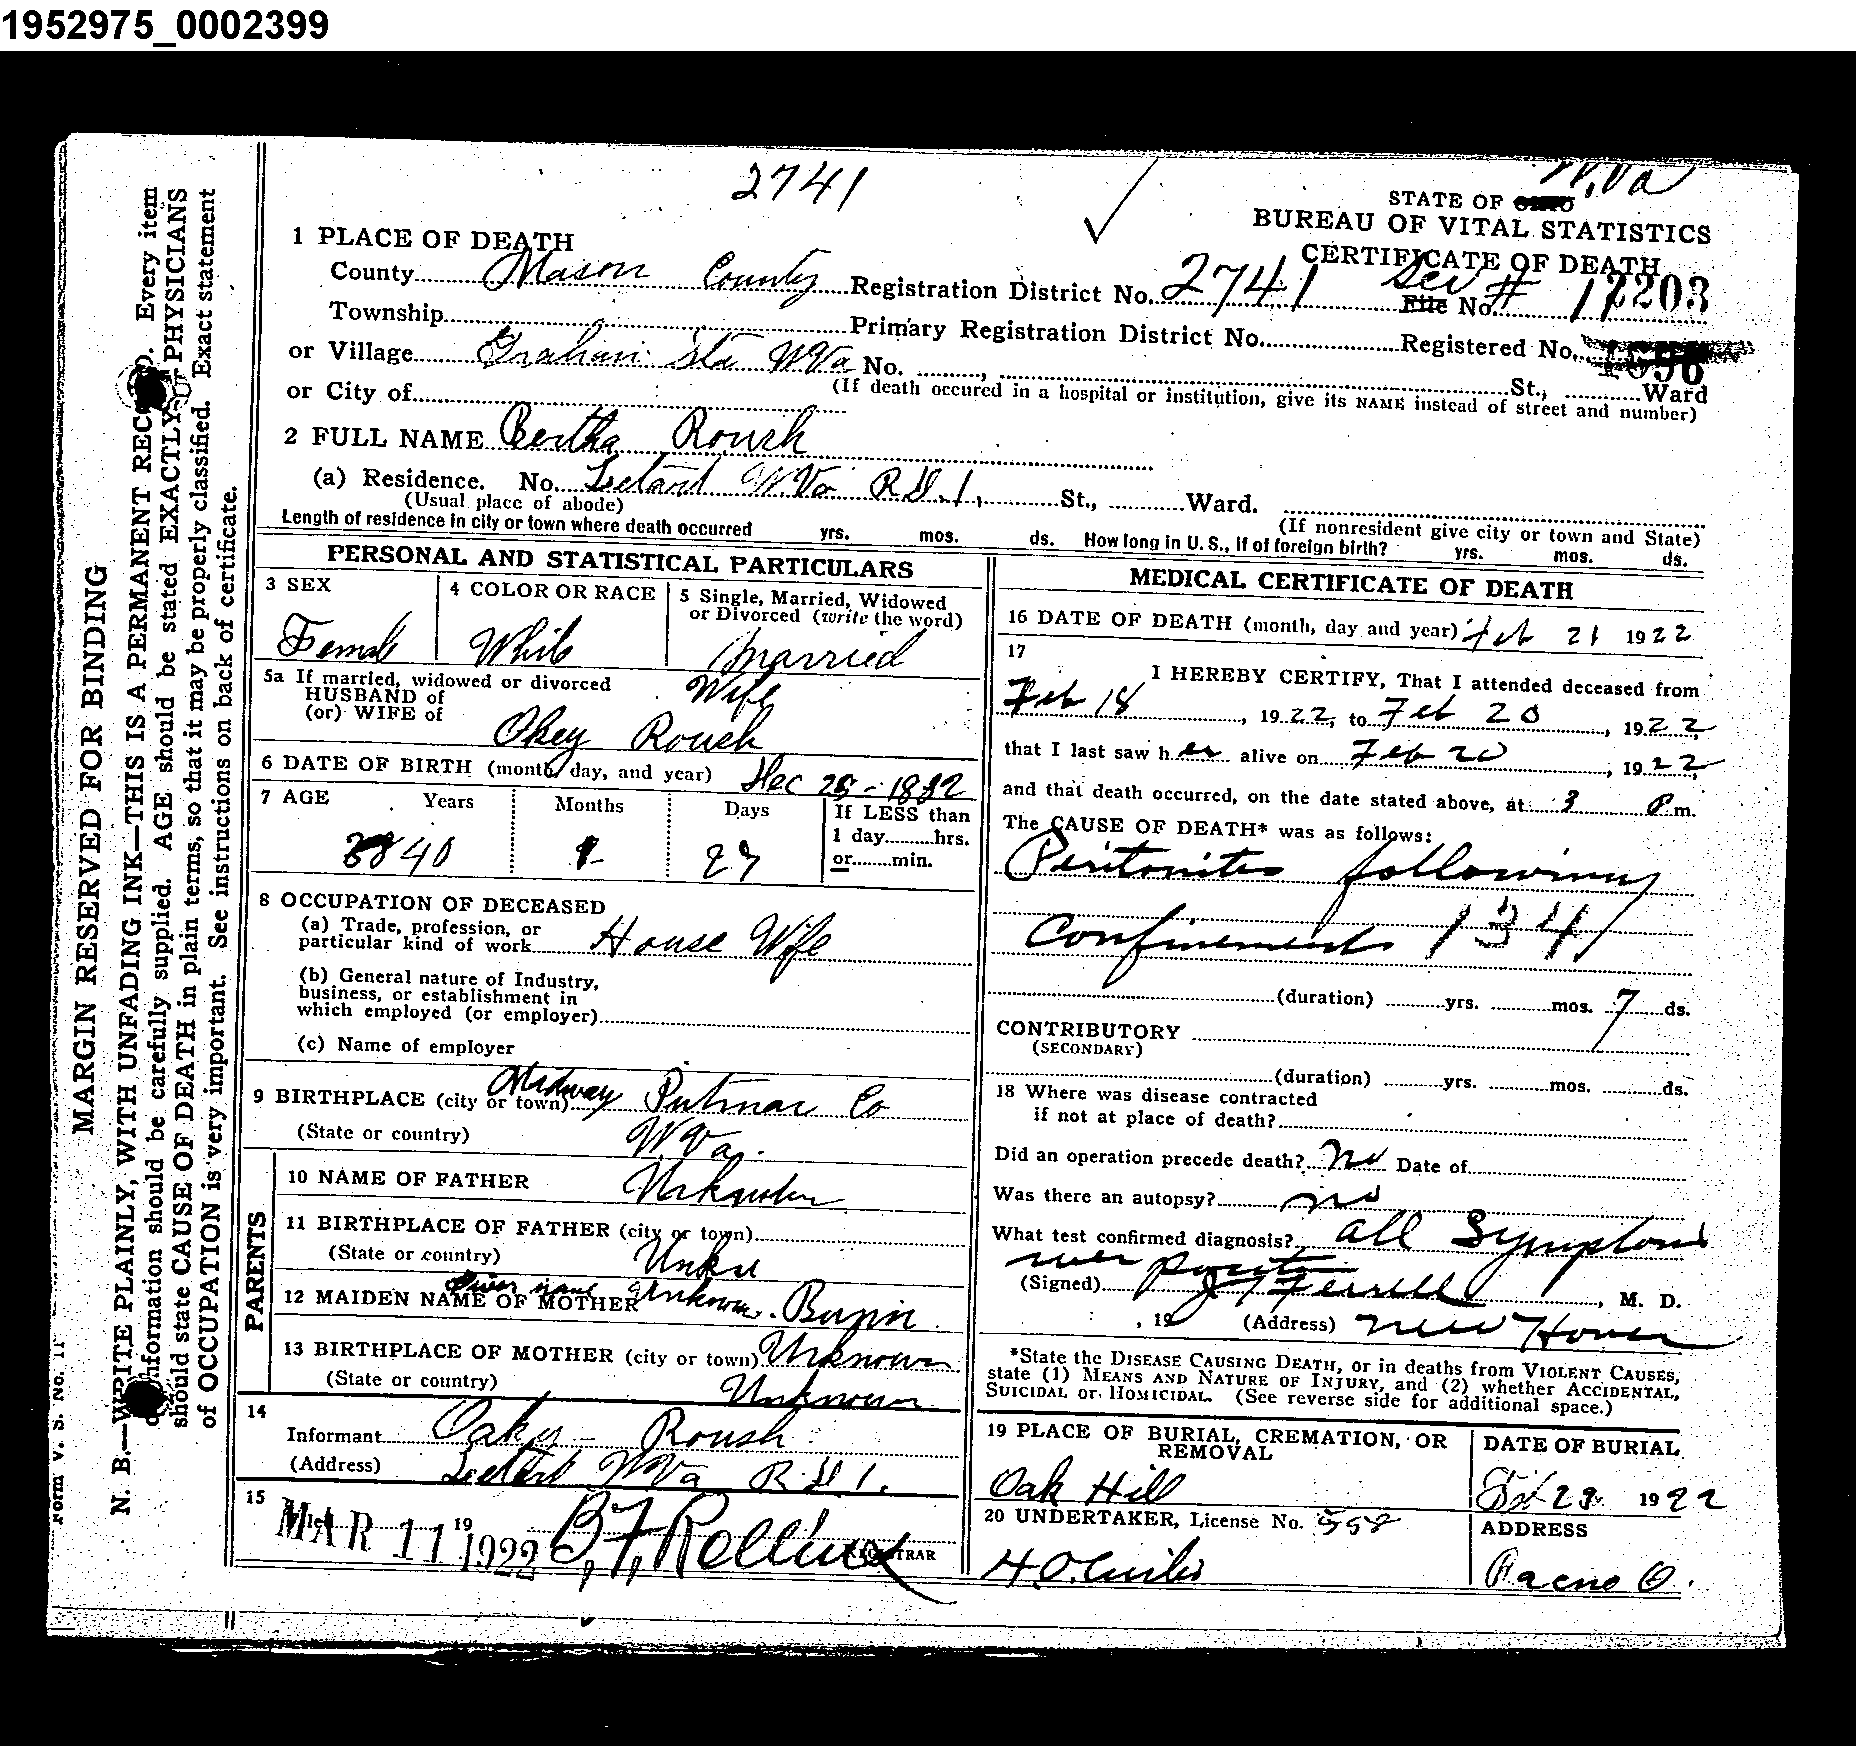 1952975_0002399
2741
W.Va
STATE OF OHIO
BUREAU OF VITAL STATISTICS
CERTIFICATE OF DEATH
1 PLACE OF DEATH
County Mason County Registration District No. 2741 File No. # 17203
Township Primary Registration District No. Registered No.
or Village Graham Sta W Va No. St., Ward
or City of (If death occured in a hospital or institution, give its NAME instead of street and number)
2 FULL NAME Bertha Roush
(a) Residence. No. Letart W.Va R.D.1, St., Ward.
(Usual place of abode) (If nonresident give city or town and State)
Length of residence in city or town where death occurred yrs. mos. ds. How long in U. S., if of foreign birth? yrs. mos. ds.
PERSONAL AND STATISTICAL PARTICULARS
3 SEX
Female
4 COLOR OR RACE
White
5 Single, Married, Widowed
or Divorced (write the word)
Married
5a If married, widowed or divorced
HUSBAND of
(or) WIFE of
Wife
Okey Roush
6 DATE OF BIRTH (month, day, and year) Dec 25-1882
7 AGE Years Months Days If LESS than
1 day hrs.
or min.
40 1 27
8 OCCUPATION OF DECEASED
(a) Trade, profession, or
particular kind of work House Wife
(b) General nature of Industry,
business, or establishment in
which employed (or employer)
(c) Name of employer
9 BIRTHPLACE (city or town) Midway Putnam Co
(State or country) W.Va.
PARENTS
10 NAME OF FATHER Unknown
11 BIRTHPLACE OF FATHER (city or town)
(State or country) Unkn
Given name Unknown.
12 MAIDEN NAME OF MOTHER
13 BIRTHPLACE OF MOTHER (city or town) Unknown
(State or country) Unknown
14
Informant Oaky Roush
(Address) Letart W Va R.D 1.
15
Filed 19
MAR 11 1922
REGISTRAR
MEDICAL CERTIFICATE OF DEATH
16 DATE OF DEATH (month, day and year) Feb 21 1922
17
I HEREBY CERTIFY, That I attended deceased from
Feb 18, 1922, to Feb 20, 1922,
that I last saw her alive on Feb 20, 1922,
and that death occurred, on the date stated above, at 3 Pm.
The CAUSE OF DEATH* was as follows:
Peritonites following
Confinement 134
(duration) yrs. mos. 7 ds.
CONTRIBUTORY
(SECONDARY)
(duration) yrs. mos. ds.
18 Where was disease contracted
if not at place of death?
Did an operation precede death? No Date of
Was there an autopsy? no
What test confirmed diagnosis? all Symptoms
(Signed) Ferrell, M. D.
, 19 (Address) New Haven
*State the DISEASE CAUSING DEATH, or in deaths from VIOLENT CAUSES,
state (1) MEANS AND NATURE OF INJURY, and (2) whether ACCIDENTAL,
SUICIDAL or HOMICIDAL. (See reverse side for additional space.)
19 PLACE OF BURIAL, CREMATION, OR
REMOVAL
Oak Hill
DATE OF BURIAL
Feb 23 1922
20 UNDERTAKER, License No. 558
ADDRESS
Racine O.
MARGIN RESERVED FOR BINDING
N. B.—WRITE PLAINLY, WITH UNFADING INK—THIS IS A PERMANENT RECORD. Every item
of information should be carefully supplied. AGE should be stated EXACTLY. PHYSICIANS
should state CAUSE OF DEATH in plain terms, so that it may be properly classified. Exact statement
of OCCUPATION is very important. See instructions on back of certificate.
Form V. S. No. 11